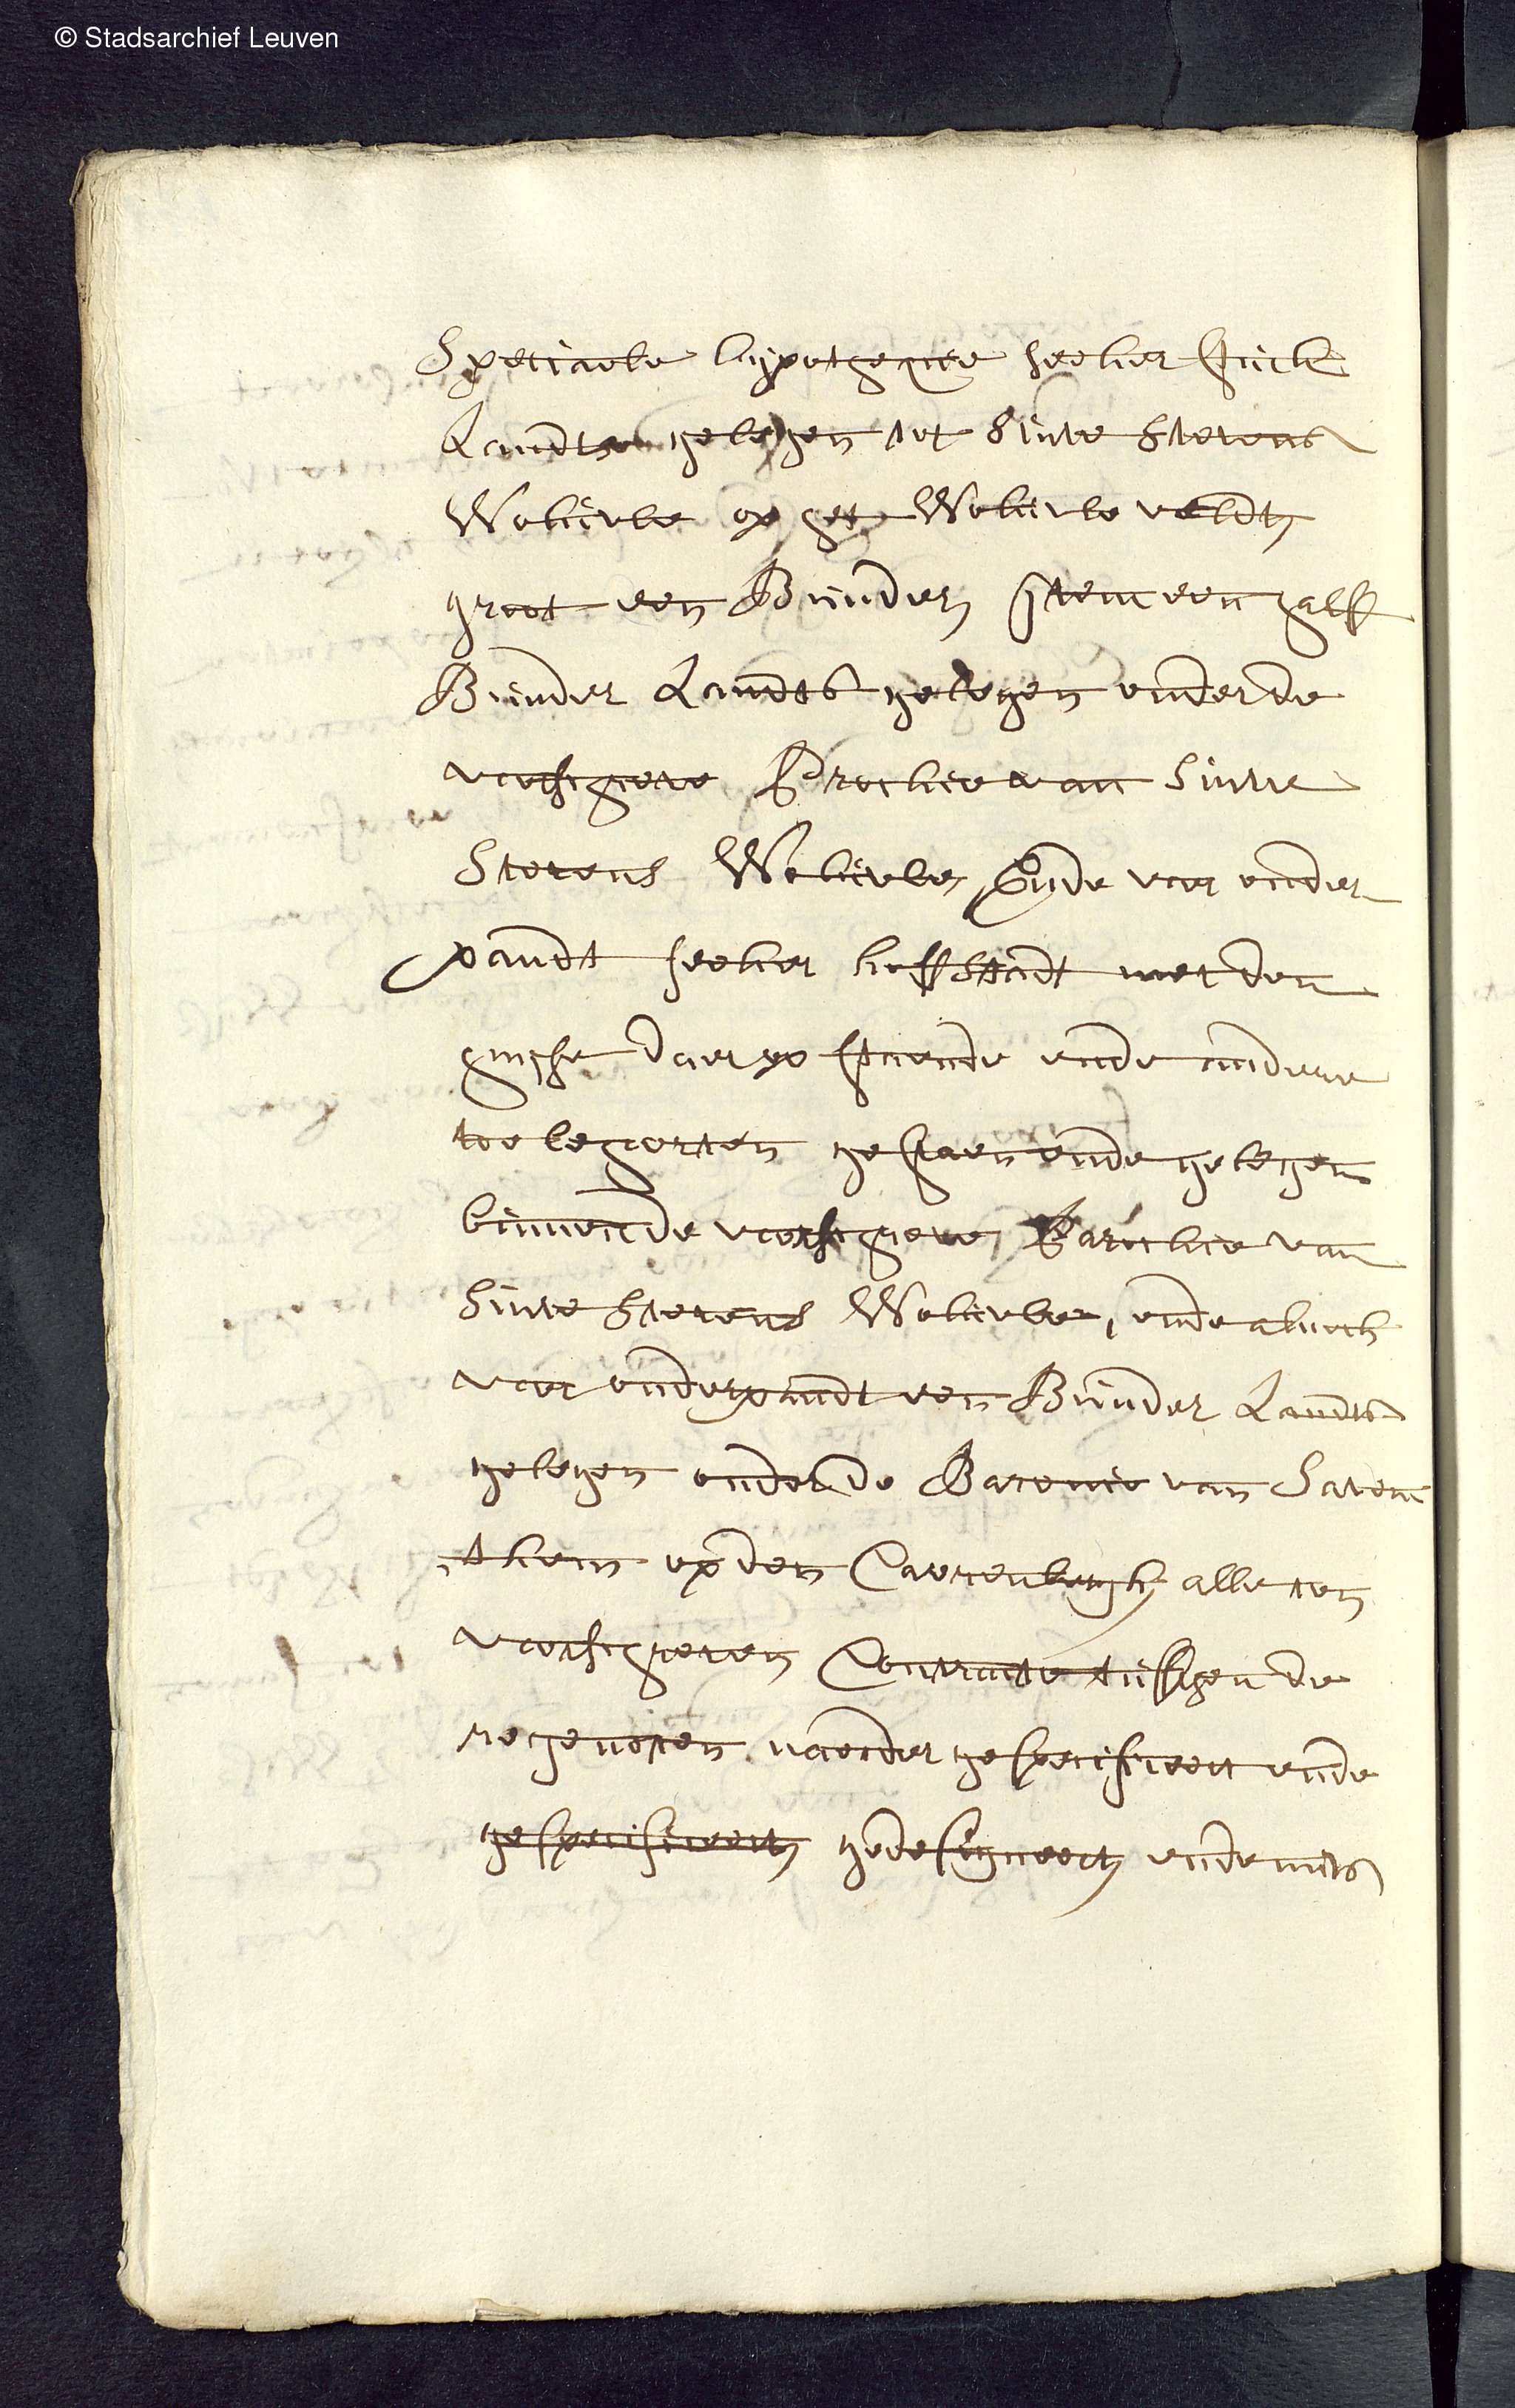 © Stadsarchief Leuven
Speciaele hijpotheque seeker stuck
Landts gelegen tot Sinte Stevens
Woluwe op het Woluwe veldt
groot een Bunder Item een halff
Bunder Landts gelegen onder de
voorschreve Prochie van Sinte
Stevens Woluwe, Ende voor onder
pandt seeker hoffstadt met den
huyse daer op staende ende andere
toebehoorten gestaen ende gelegen
binnen de voorschreve Parochie van
Sinte Stevens Woluwe, ende alnoch
voor onderpandt een Bunder Landts
gelegen onder de Baronie van Saven
them op den Cauwenbergh alle ten
voorschreven Contracte tusschen de
regenoten naerder gespecificeert ende
gespecificeert gedesigneert ende mits